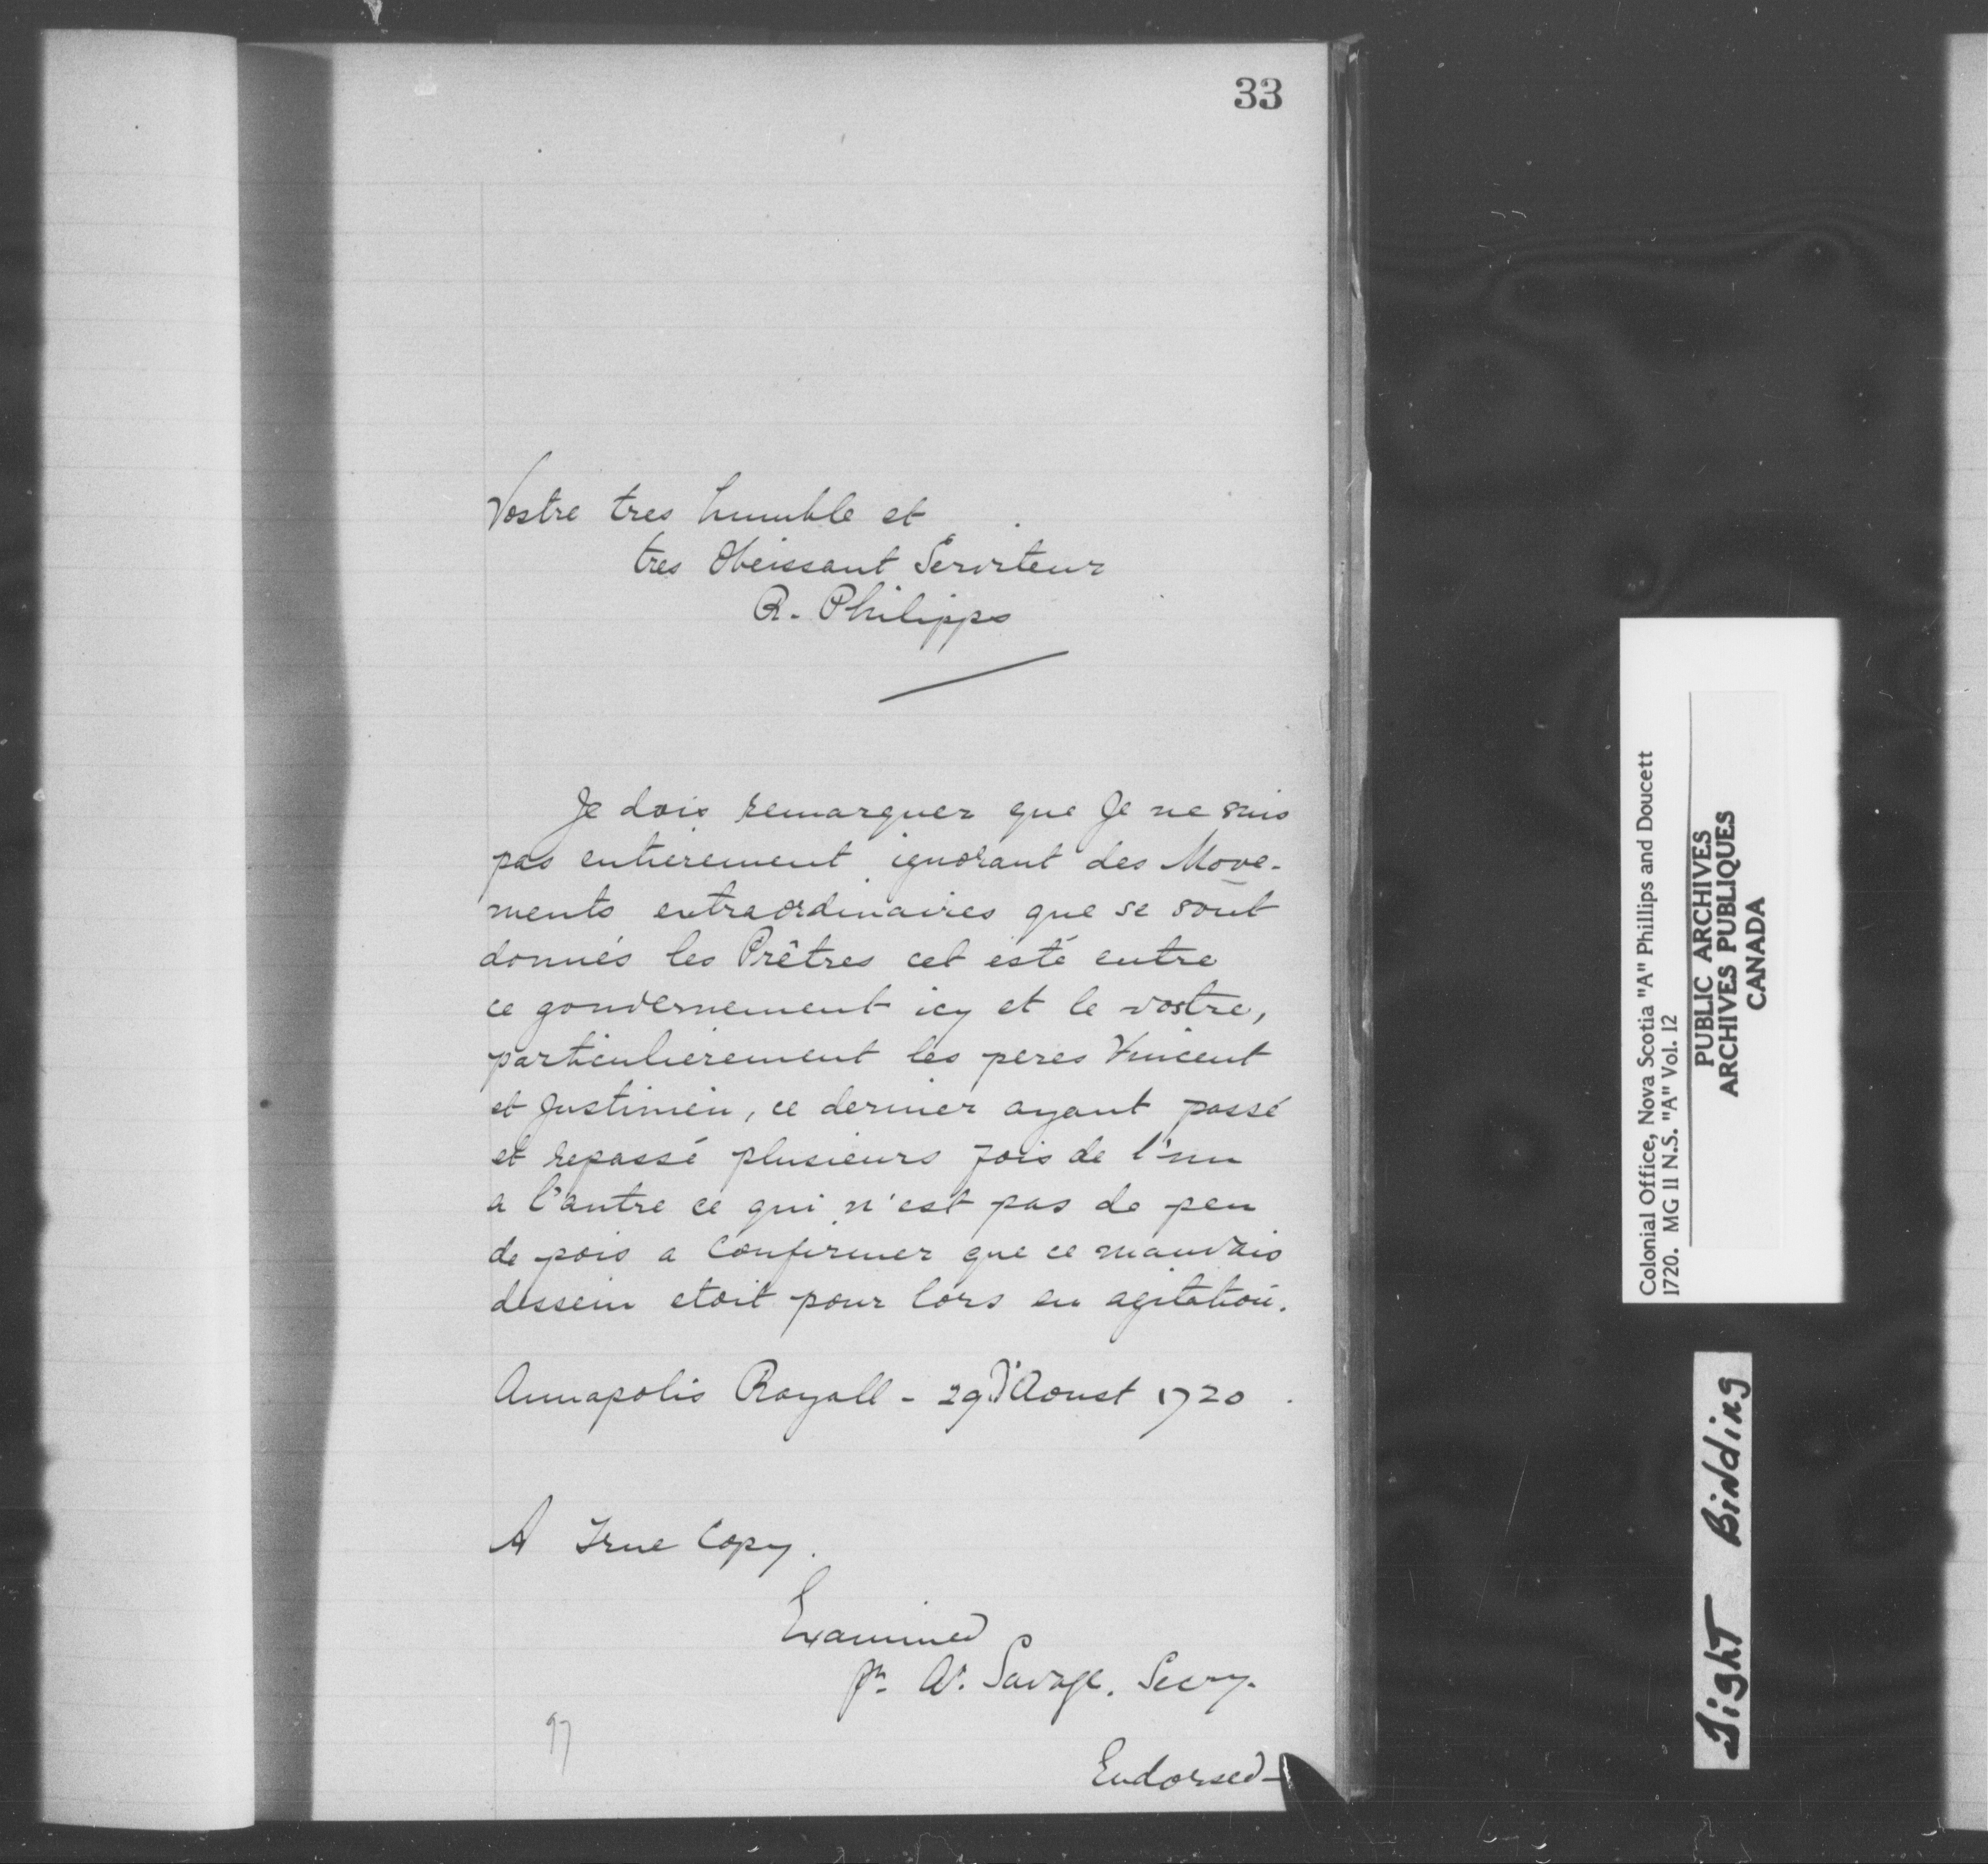 33
Vostre tres humble et
tres Obeissant Serviteur
R. Philipps
Je dois remarquer que Je ne suis
pas entierement ignorant des Move-
ments extraordinaires que se sont
donnés les Prêtres cet esté entre
ce gouvernement icy et le vostre,
particulierement les peres Vincent
et Justinien, ce dernier ayant passé
et repassé plusieurs fois de l'un
a l'autre ce qui n'est pas de peu
de pois a Confirmer que ce mauvais
dessein etoit pour lors en agitation.
Annapolis Royall - 29 d'Aoust 1720.
A True Copy.
Examined
pr. Ar. Savage. Secry.
97
Endorsed-
Colonial Office, Nova Scotia "A" Phillips and Doucett
1720. MG 11 N.S. "A" Vol. 12
PUBLIC ARCHIVES
ARCHIVES PUBLIQUES
CANADA
Tight Binding